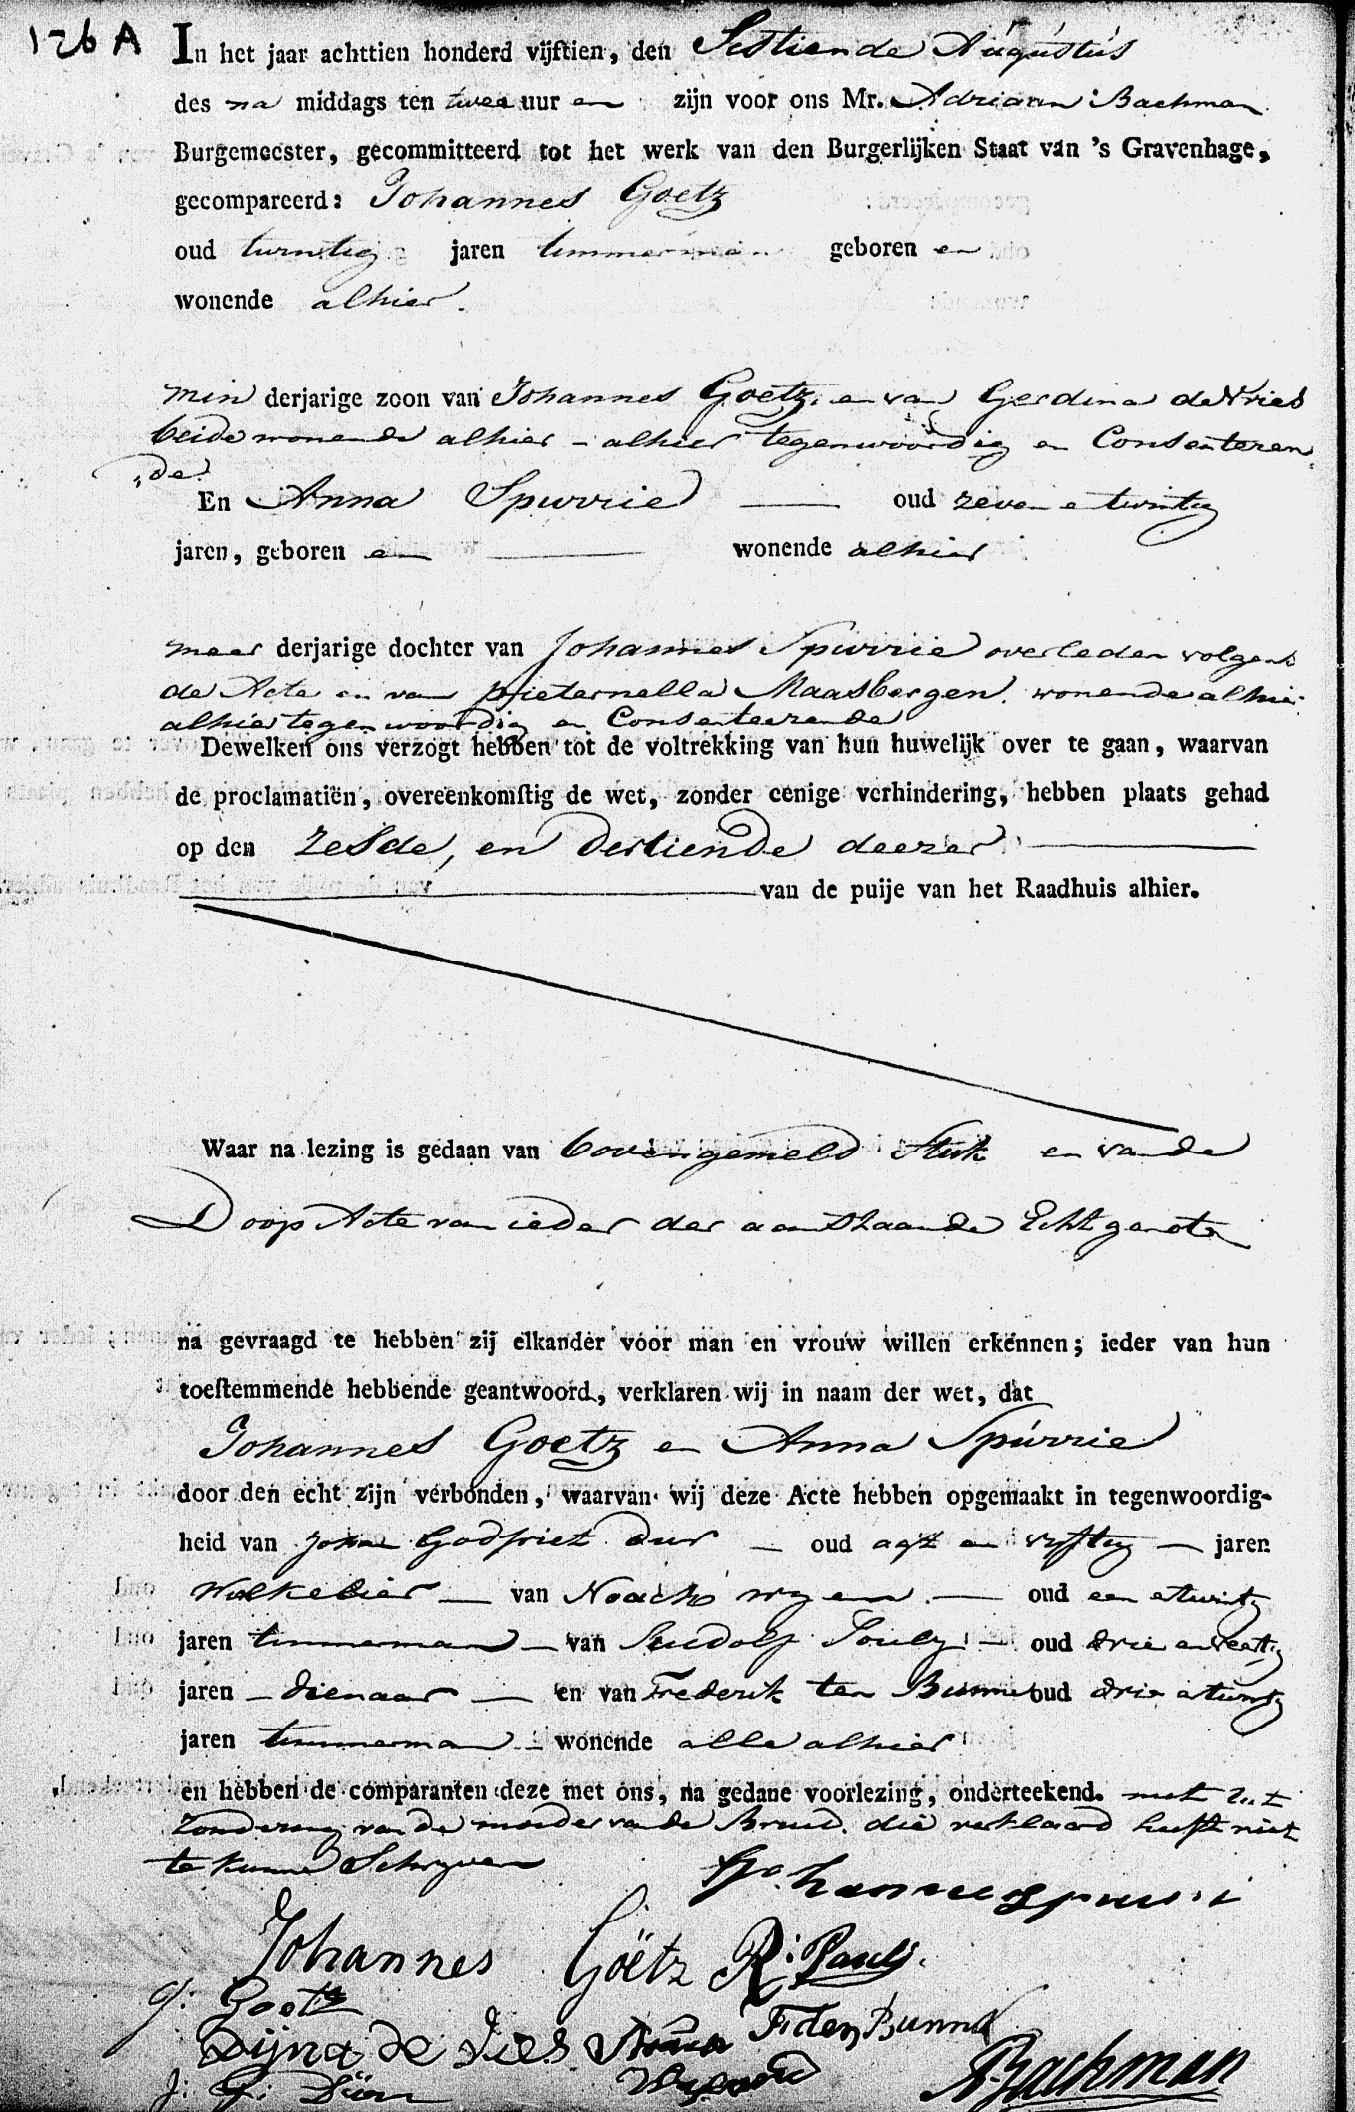 126 A
In het jaar achttien honderd vijftien, den Sestiende Augustus
des na middags ten twee uur en zijn voor ons Mr. Adriaan Bachman
Burgemeester, gecommitteerd tot het werk van den Burgerlijken Staat van 's Gravenhage,
gecompareerd: Johannes Goetz
oud twintig jaren timmerman geboren en
wonende alhier.
min derjarige zoon van Johannes Goetz en van Gerdina de Vries
beide wonende alhier - alhier tegenwoordig en Consenteren
de
En Anna Spurrie oud zeven e twintig
jaren, geboren en wonende alhier
meer derjarige dochter van Johannes Spurrie overleden volgens
de Acte en van pieternella Maasbergen wonende alhier
alhier tegenwoordig en Consenteerende
Dewelken ons verzogt hebben tot de voltrekking van hun huwelijk over te gaan, waarvan
de proclamatiën, overeenkomstig de wet, zonder eenige verhindering, hebben plaats gehad
op den zesde, en dertiende deezer
van de puije van het Raadhuis alhier.
Waar na lezing is gedaan van bovengemeld Stuk en van de
Doop Acte van ieder der aanstaande Echtgenoten
na gevraagd te hebben zij elkander voor man en vrouw willen erkennen; ieder van hun
toestemmende hebbende geantwoord, verklaren wij in naam der wet, dat
Johannes Goetz en Anna Spurrie
door den echt zijn verbonden, waarvan wij deze Acte hebben opgemaakt in tegenwoordig-
heid van Johan Godfriet oud agt en vyftig jaren
van Noach oud een e twintig
jaren timmerman van Rudolf Pouly oud drie en veertig
jaren - dienaar en van Frederik ten Bunne oud drie e twintig
jaren timmerman wonende alle alhier
en hebben de comparanten deze met ons, na gedane voorlezing, onderteekend. met uit
zondering van de moeder van de Bruid. die verklaard heeft niet
te kunnen Schryven
Johannes Götz R: Pauly.
J: Goetz
Dijna de Vies Anna F ten Bunne
J: G:
A Bachman